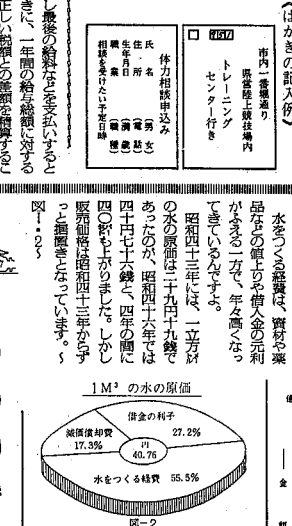 (はがきの記入例)
市内一番堀通り
県営陸上競技場内
トレーニング
センター行き
体力相談申込み
氏名(男女)
住所(電話)
生年月日(満歳)
職業(職種)
相談を受けたい予定日時
し最後の給料などを支払いすると
きに、一年間の給与総額に対する
正しい税額との差額を精算するこ
水をつくる経費は、資材や薬
品などの値上りや借入金の元利
がふえる一方で、年々高くなっ
てきているんですよ。
昭和四十三年には、一立方㍍
の水の原価は二十九円十九銭で
あったのが、昭和四十六年では
四十円七十六銭と、四年の間に
四〇㌫も上がりました。しかし
販売価格は昭和四十三年からず
っと据置きとなっています。~
図1・2~
1M³の水の原価
借金の利子
27.2%
減価償却費
17.3%
円
40.76
水をつくる経費 55.5%
図-2
金